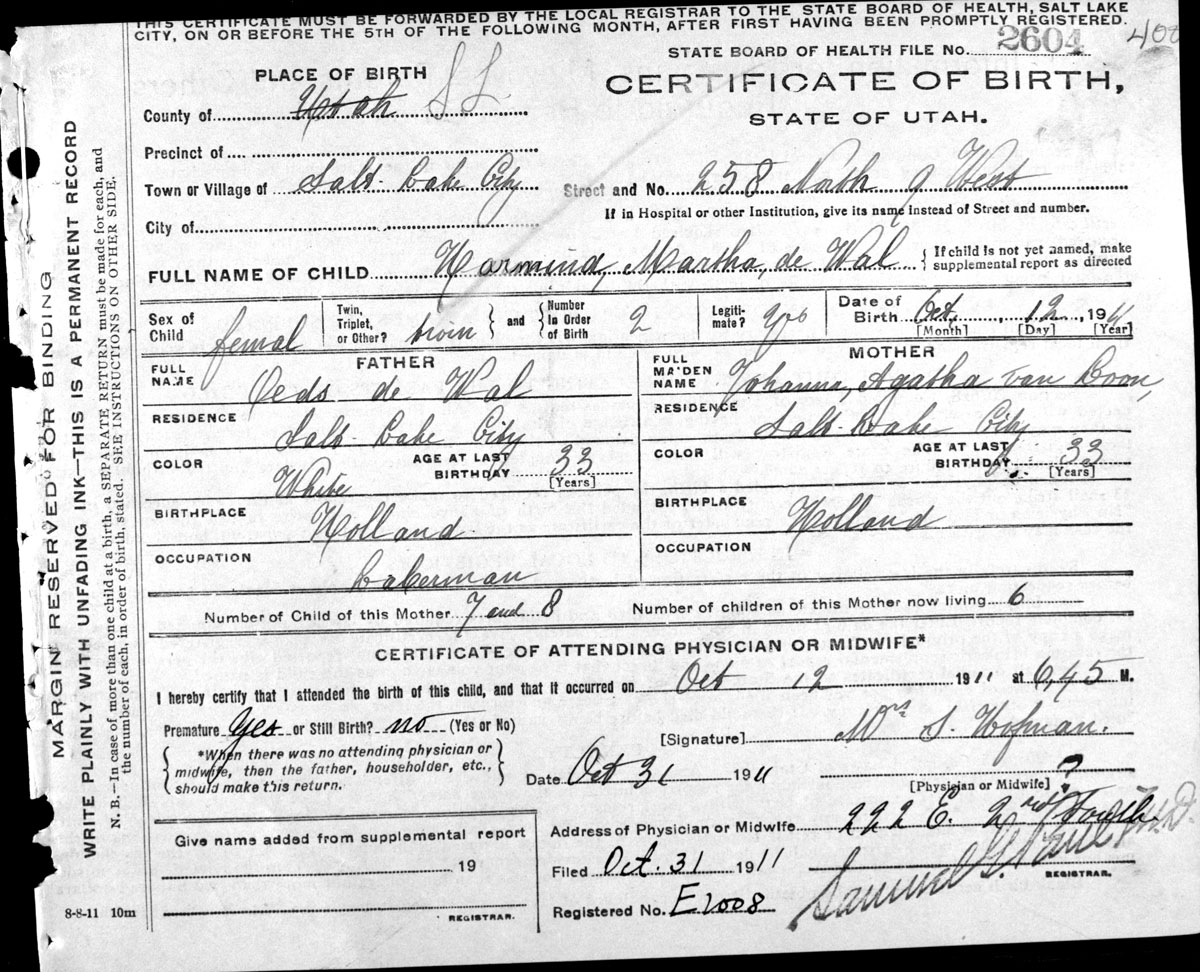 THIS CERTIFICATE MUST BE FORWARDED BY THE LOCAL REGISTRAR TO THE STATE BOARD OF HEALTH, SALT LAKE
CITY, ON OR BEFORE THE 5TH OF THE FOLLOWING MONTH, AFTER FIRST HAVING BEEN PROMPTLY REGISTERED.
STATE BOARD OF HEALTH FILE No. 2604 400
PLACE OF BIRTH
CERTIFICATE OF BIRTH,
STATE OF UTAH.
County of Utah S L
Precinct of
Town or Village of Salt Lake City Street and No. 258 North 9 West
If in Hospital or other Institution, give its name instead of Street and number.
City of
FULL NAME OF CHILD Harmina, Martha, de Wal { If child is not yet named, make supplemental report as directed
Sex of Child femal Twin, Triplet, or Other? twin } and { Number In Order of Birth 2 Legiti- mate? yes Date of Birth Oct. 12 1911
[Month] [Day] [Year]
FATHER
FULL NAME Oeds de Wal
RESIDENCE Salt Lake City
COLOR White AGE AT LAST BIRTHDAY 33 [Years]
BIRTHPLACE Holland
OCCUPATION Laberman
MOTHER
FULL MAIDEN NAME Johanna, Agatha van Loon,
RESIDENCE Salt Lake City
COLOR AGE AT LAST BIRTHDAY 33 [Years]
BIRTHPLACE Holland
OCCUPATION
Number of Child of this Mother 7 and 8 Number of children of this Mother now living 6
CERTIFICATE OF ATTENDING PHYSICIAN OR MIDWIFE*
I hereby certify that I attended the birth of this child, and that it occurred on Oct 12 1911 at 6,45 M.
Premature Yes or Still Birth? no (Yes or No)
[Signature] Mrs S. Hofman.
{ *When there was no attending physician or midwife, then the father, householder, etc., should make this return. }
Date Oct 31 1911
[Physician or Midwife] ?
Address of Physician or Midwife 222 E. 2nd South
Give name added from supplemental report
19
REGISTRAR.
Filed Oct. 31 1911
Samuel G. Paul M.D.
REGISTRAR.
Registered No. E2008
8-8-11 10m
MARGIN RESERVED FOR BINDING
WRITE PLAINLY WITH UNFADING INK—THIS IS A PERMANENT RECORD
N. B.—In case of more than one child at a birth, a SEPARATE RETURN must be made for each, and
the number of each, in order of birth, stated. SEE INSTRUCTIONS ON OTHER SIDE.